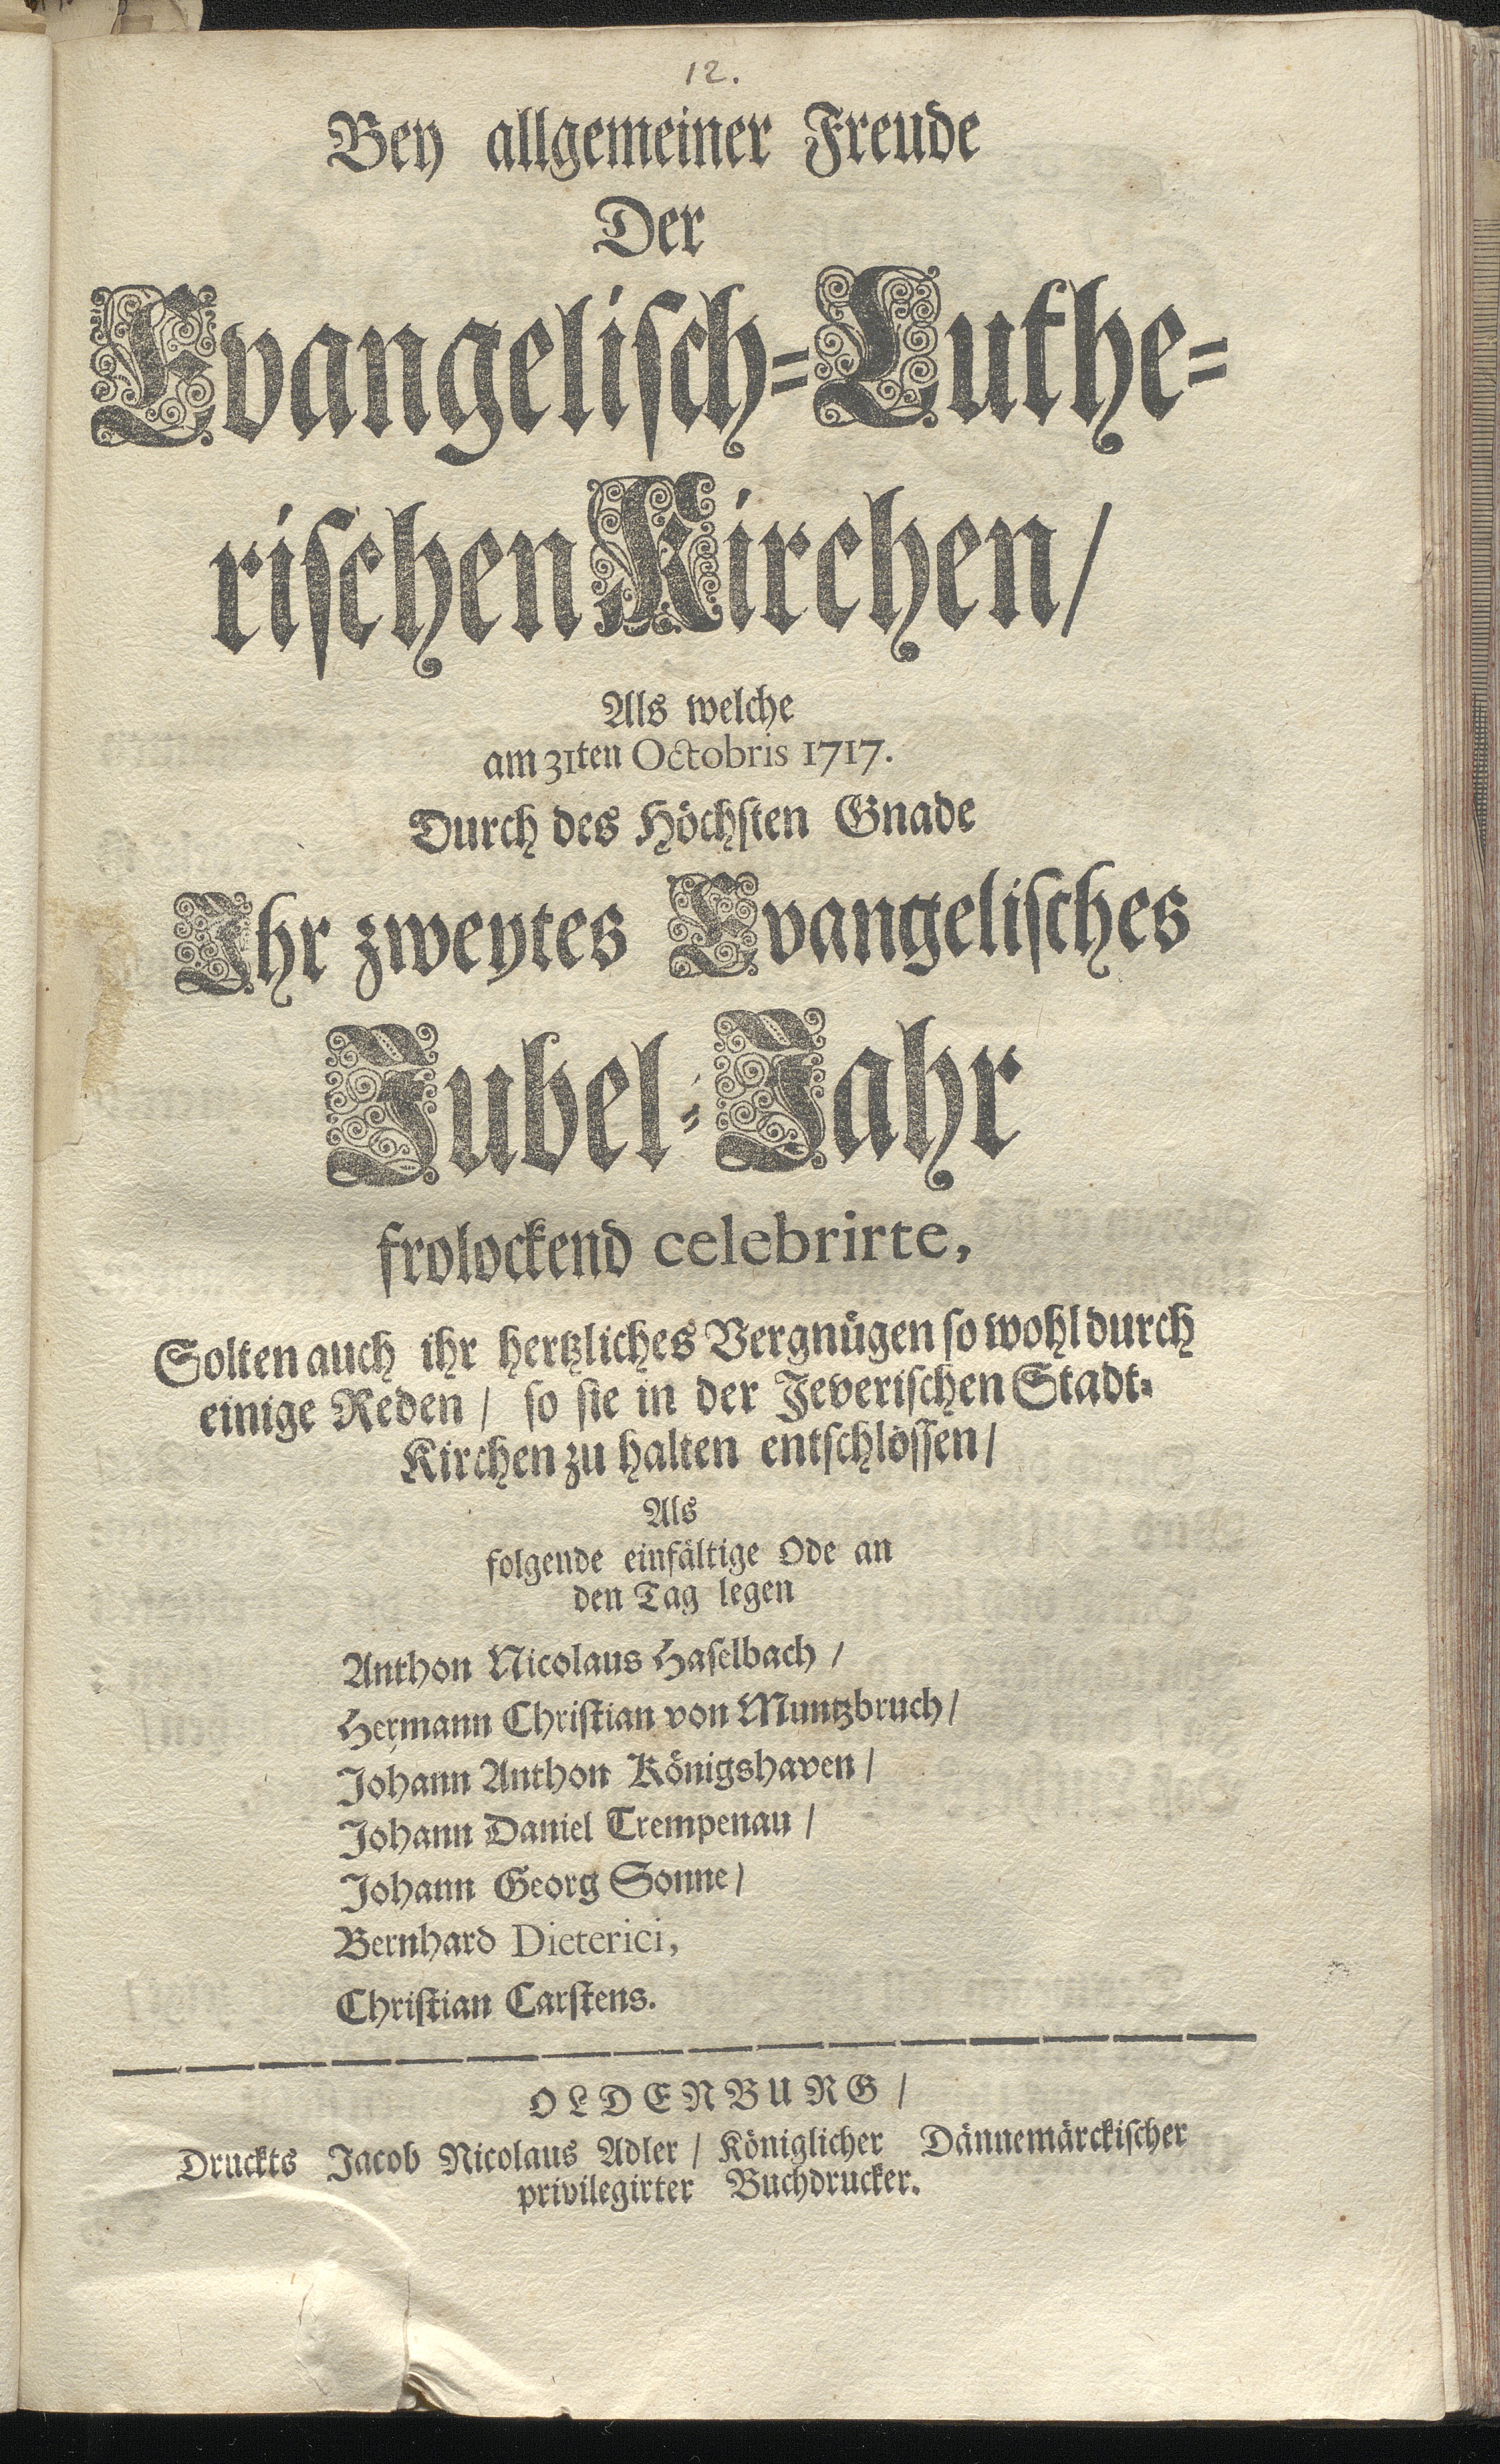 12.
Bey allgemeiner Freude
Der
Evangelisch-Luthe-
rischen Kirchen/
Als welche
am 31ten Octobris 1717.
Durch des Höchsten Gnade
Ihr zweytes Evangelisches
Jubel-Jahr
frolockend celebrirte,
Solten auch ihr hertzliches Vergnügen so wohl durch
einige Reden / so sie in der Jeverischen Stadt-
Kirchen zu halten entschlossen /
Als
folgende einfältige Ode an
den Tag legen
Anthon Nicolaus Haselbach /
Hermann Christian von Muntzbruch /
Johann Anthon Königshaven /
Johann Daniel Trempenau /
Johann Georg Sonne /
Bernhard Dieterici,
Christian Carstens.
OLDENBURG /
Druckts Jacob Nicolaus Adler / Königlicher Dännemärckischer
privilegirter Buchdrucker.